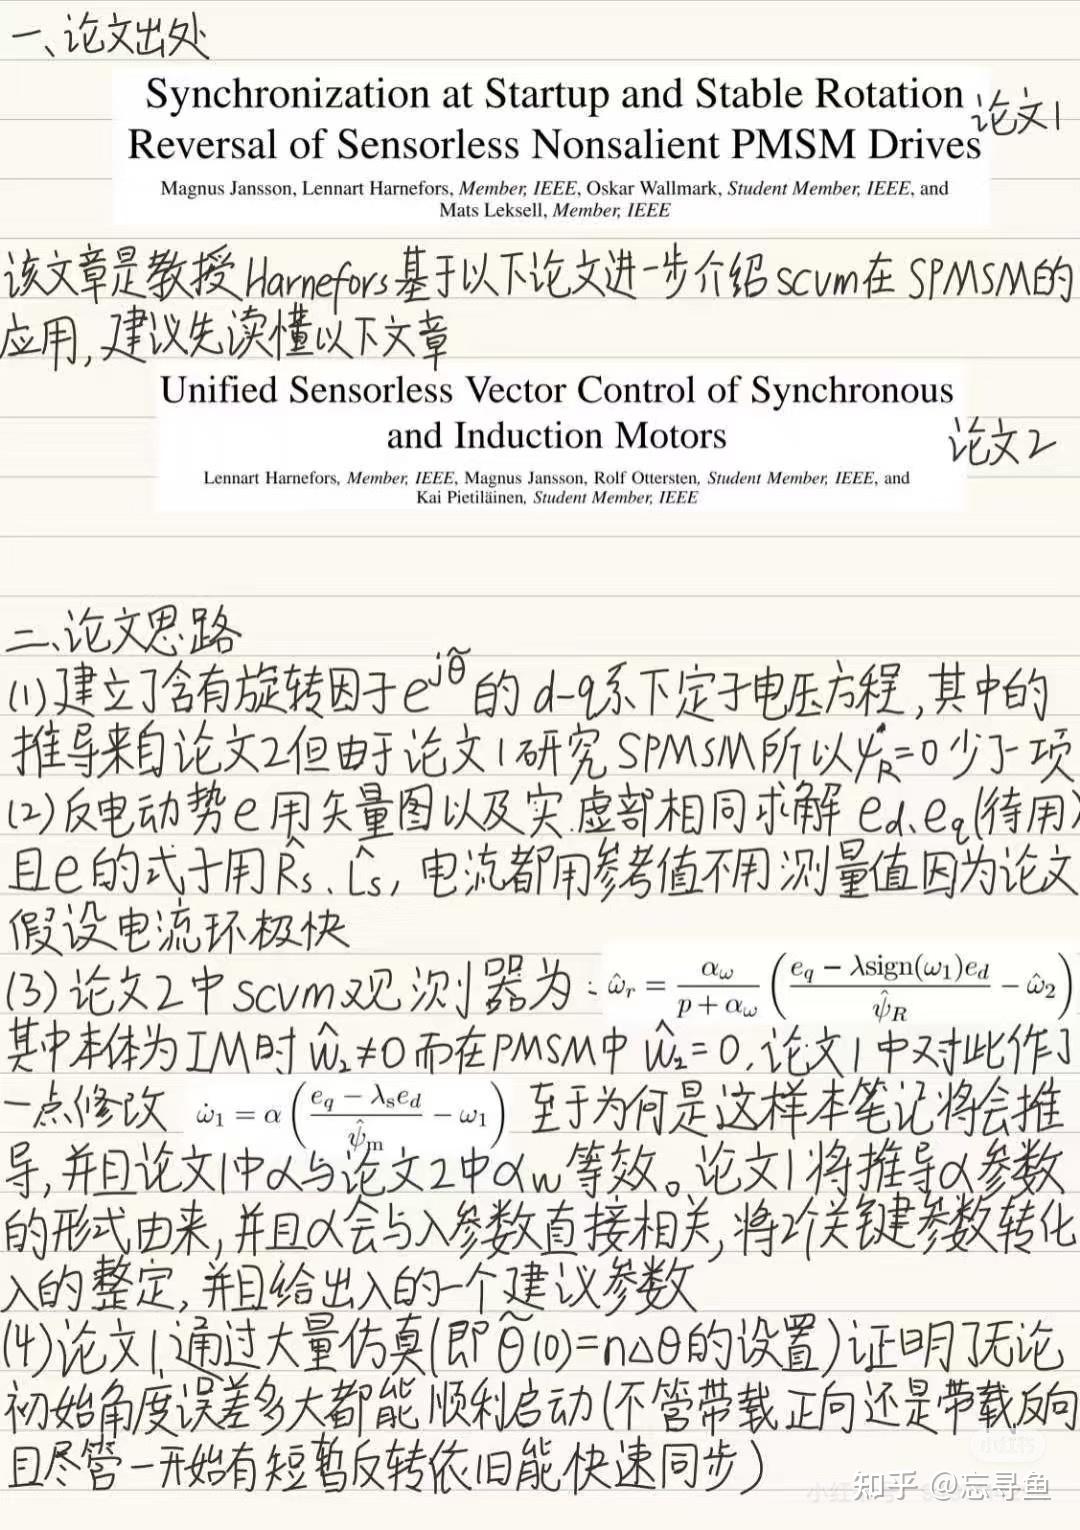 一、论文出处
Synchronization at Startup and Stable Rotation
Reversal of Sensorless Nonsalient PMSM Drives
论文1
Magnus Jansson, Lennart Harnefors, Member, IEEE, Oskar Wallmark, Student Member, IEEE, and
Mats Leksell, Member, IEEE
该文章是教授Harnefors基于以下论文进一步介绍scvm在SPMSM的
应用,建议先读懂以下文章
Unified Sensorless Vector Control of Synchronous
and Induction Motors
论文2
Lennart Harnefors, Member, IEEE, Magnus Jansson, Rolf Ottersten, Student Member, IEEE, and
Kai Pietiläinen, Student Member, IEEE
二、论文思路
(1)建立了含有旋转因子e^{jθ̃}的d-q系下定子电压方程,其中的
推导来自论文2但由于论文1研究SPMSM所以ψ̇_R=0少了一项
(2)反电动势e用矢量图以及实.虚部相同求解e_d、e_q(待用)
且e的式子用R̂s、L̂s,电流都用参考值不用测量值因为论文
假设电流环极快
(3)论文2中scvm观测器为: ω̂_r = α_ω/(p+α_ω) ((e_q − λsign(ω_1)e_d)/ψ̂_R − ω̂_2)
其中本体为IM时ω̂_2≠0而在PMSM中ω̂_2=0,论文1中对此作了
一点修改 ω̇_1 = α((e_q − λ_s e_d)/ψ̂_m − ω_1) 至于为何是这样本笔记将会推
导,并且论文1中α与论文2中α_w等效。论文1将推导α参数
的形式由来,并且α会与λ参数直接相关,将2个关键参数转化
λ的整定,并且给出λ的一个建议参数
(4)论文1通过大量仿真(即θ̃(0)=nΔθ的设置)证明了无论
初始角度误差多大都能顺利启动(不管带载正向还是带载反向
且尽管一开始有短暂反转依旧能快速同步)
小红书
知乎 @忘寻鱼